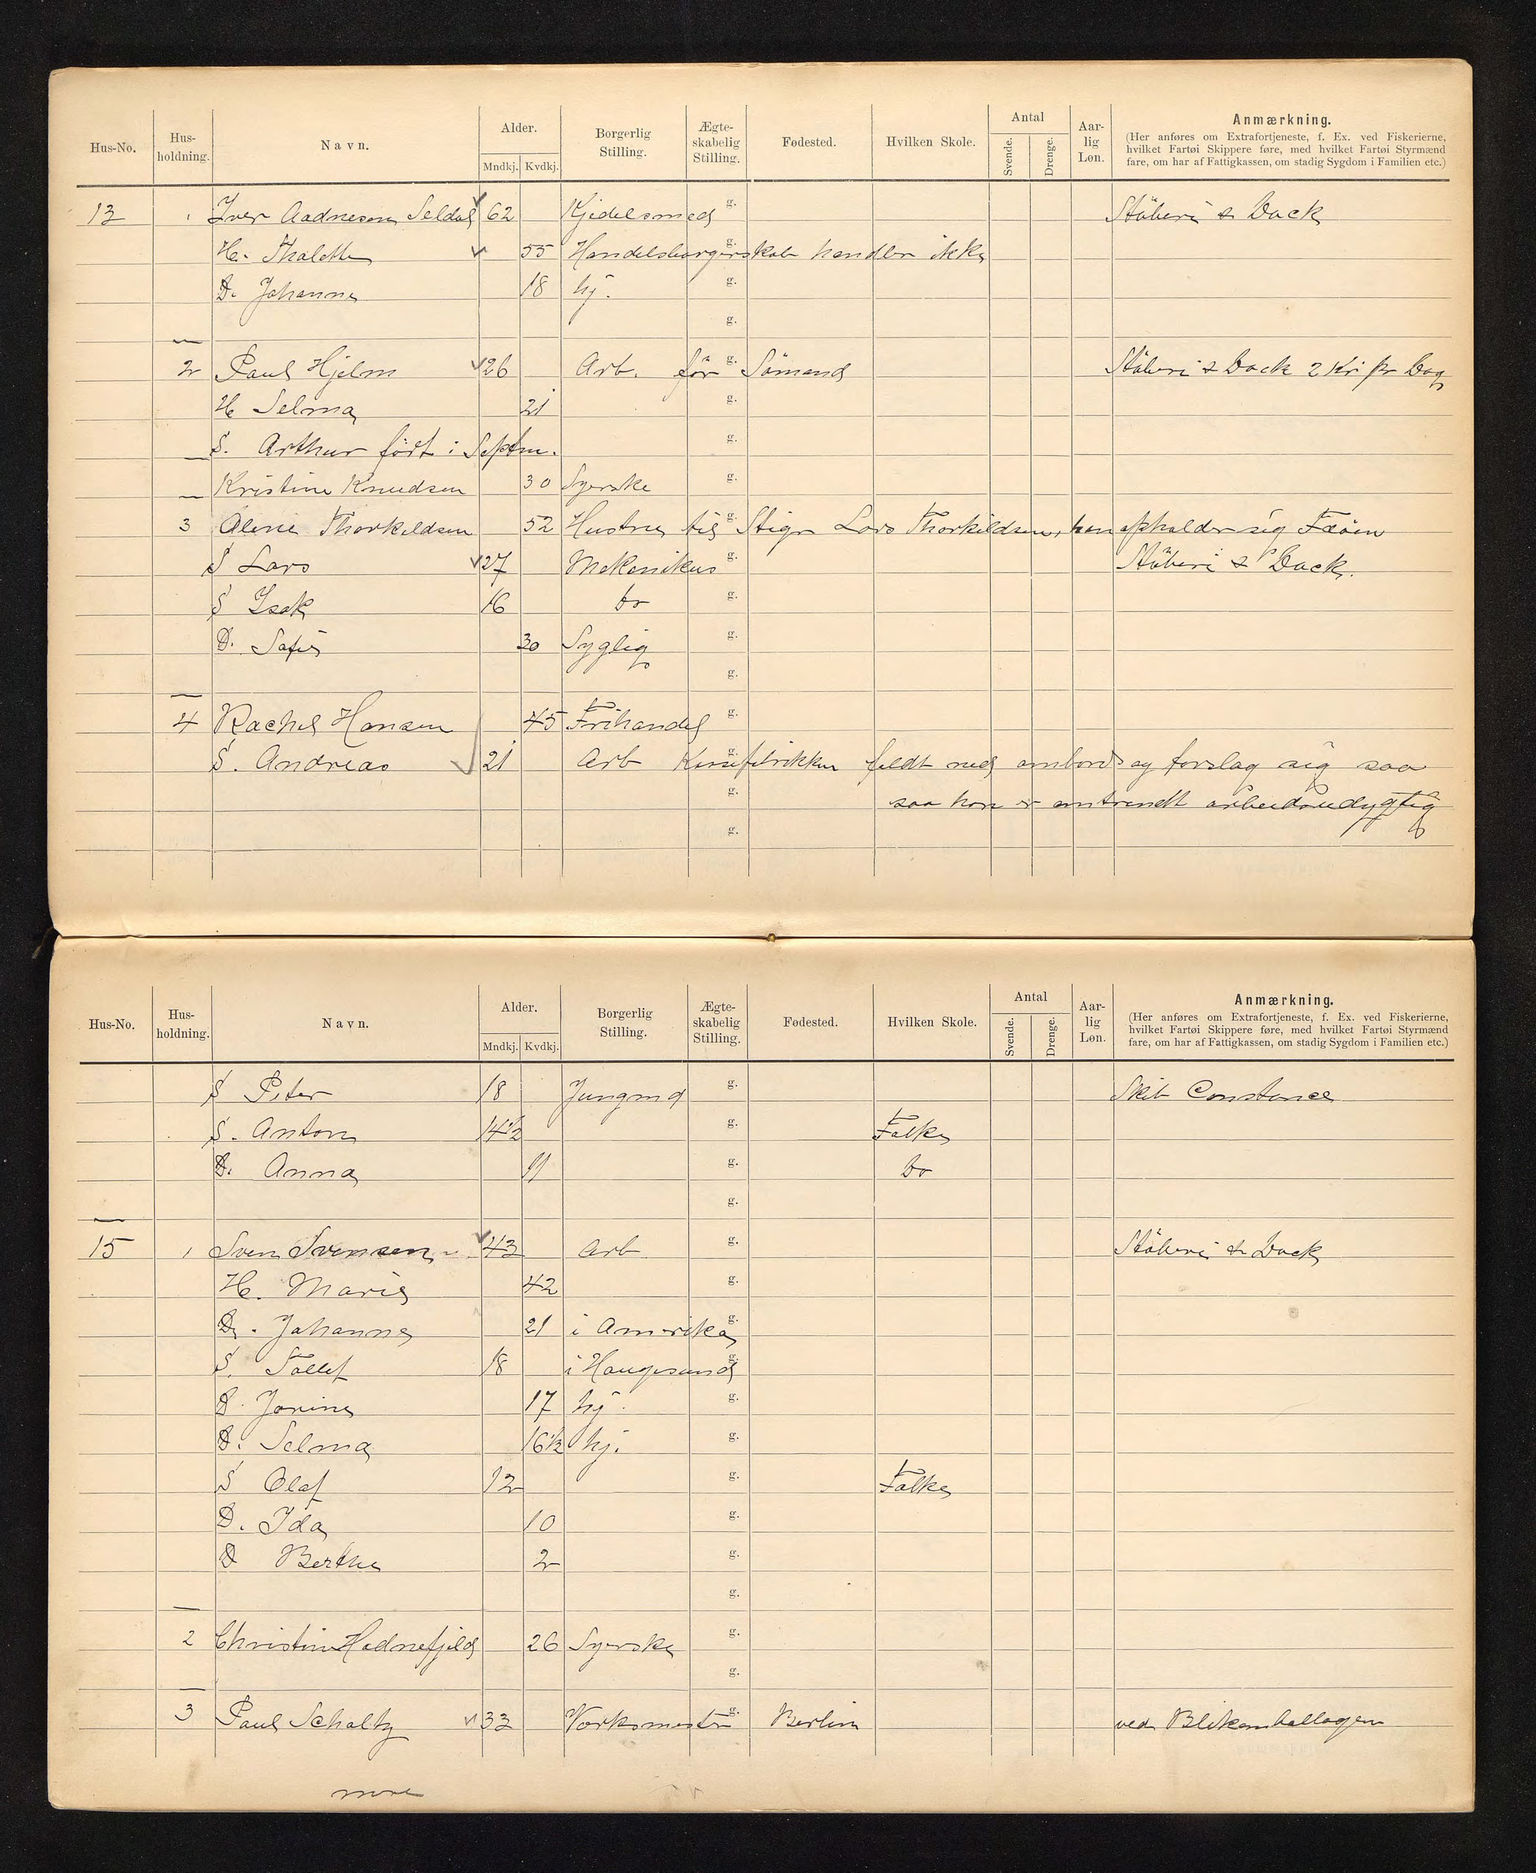 Hus-No. Hus-holdning. Navn. Alder. Mndkj. Kvdkj. Borgerlig Stilling. Ægte-skabelig Stilling. Fødested. Hvilken Skole. Antal Svende. Drenge. Aar-lig Løn. Anmærkning.
(Her anføres om Extrafortjeneste, f. Ex. ved Fiskerierne, hvilket Fartøi Skippere føre, med hvilket Fartøi Styrmænd fare, om har af Fattigkassen, om stadig Sygdom i Familien etc.)
13 1 Iver Aadnesen Seldal 62 Kjedelsmed g. Støberi & Dock
H. Thalette 55 Handelsborgerskab handler ikke g.
D. Johanne 18 hj. g.
g.
2 Paul Hjelm 26 Arb. før Sømand g. Støberi & Dock 2 Kr. pr Dag
H Selma 21 g.
S. Arthur født i Septm. g.
Kristine Knudsen 30 Syerske g.
3 Alene Thorkildsen 52 Hustru til g. Lars Thorkildsen, han opholder sig
S Lars 27 Mekanikus g. Støberi & Dock.
S Isak 16 do g.
D. Sofie 30 Syglig g.
g.
4 Rachel Hansen 45 Frihandel g.
S. Andreas 21 Arb g. faldt ned ombord og forslog sig saa
g. saa han er omtrendt arbeidsudygtig
g.
Hus-No. Hus-holdning. Navn. Alder. Mndkj. Kvdkj. Borgerlig Stilling. Ægte-skabelig Stilling. Fødested. Hvilken Skole. Antal Svende. Drenge. Aar-lig Løn. Anmærkning.
(Her anføres om Extrafortjeneste, f. Ex. ved Fiskerierne, hvilket Fartøi Skippere føre, med hvilket Fartøi Styrmænd fare, om har af Fattigkassen, om stadig Sygdom i Familien etc.)
S Peter 18 Jungmd g. Skib Constance
S. Anton 14½ g. Folke
D. Anna 11 g. do
g.
15 1 Sven Svensen 43 Arb g. Støberi & Dock
H. Marie 42 g.
D. Johanne 21 i Amerika g.
S. Tollef 18 i Haugesund g.
D. Jonine 17 hj. g.
D. Selma 16½ hj. g.
S Olaf 12 g. Folke
D. Ida 10 g.
D Berthe 2 g.
g.
2 Christine Hodnefjeld 26 Syerske g.
g.
3 Paul Scholtz 33 Værksmester g. Berlin ved Blikemballagen